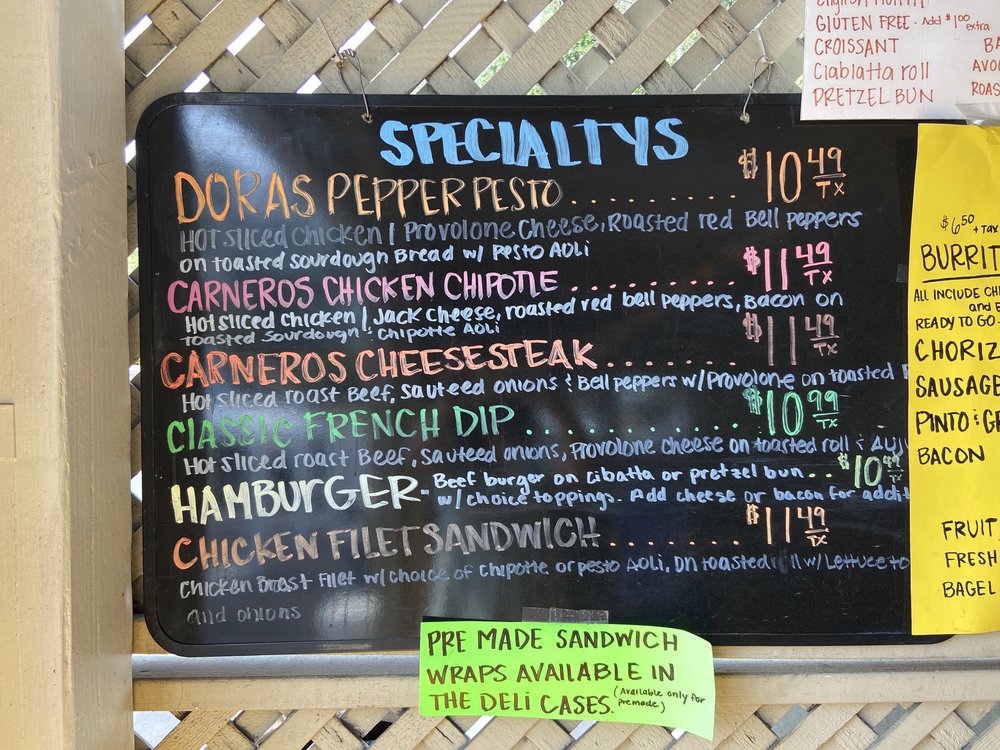 SPECIALTYS
DORAS PEPPER PESTO .......... $10.49 TX
Hot sliced chicken / Provolone Cheese, Roasted red Bell peppers
on toasted sourdough Bread w/ Pesto AOLi
CARNEROS CHICKEN CHIPOTLE .......... $11.49 TX
Hot sliced chicken / Jack cheese, roasted red bell peppers, Bacon on
Toasted Sourdough : Chipotle AOLi
CARNEROS CHEESESTEAK .......... $11.49 TX
Hot sliced roast Beef, sauteed onions & Bell peppers w/ Provolone on toasted
CLASSIC FRENCH DIP .......... $10.99 TX
Hot sliced roast Beef, sauteed onions, Provolone cheese on toasted roll & AUJU
HAMBURGER - Beef burger on cibatta or pretzel bun .. $10.
w/ choice toppings. Add cheese or bacon for addit
CHICKEN FILET SANDWICH .......... $11.49 TX
Chicken Brest Filet w/ choice of chipotle or pesto AOLi. On toasted roll w/ Lettuce to
and onions
PRE MADE SANDWICH
WRAPS AVAILABLE IN
THE DELI CASES. (Available only for
premade)
GLUTEN FREE - Add $1.00 extra
CROISSANT BA
Ciablatta roll AVO
PRETZEL BUN ROAS
$6.50 + TAX
BURRIT
ALL INCLUDE CH
and E
READY TO GO
CHORIZ
SAUSAGE
PINTO & G
BACON
FRUIT
FRESH
BAGEL